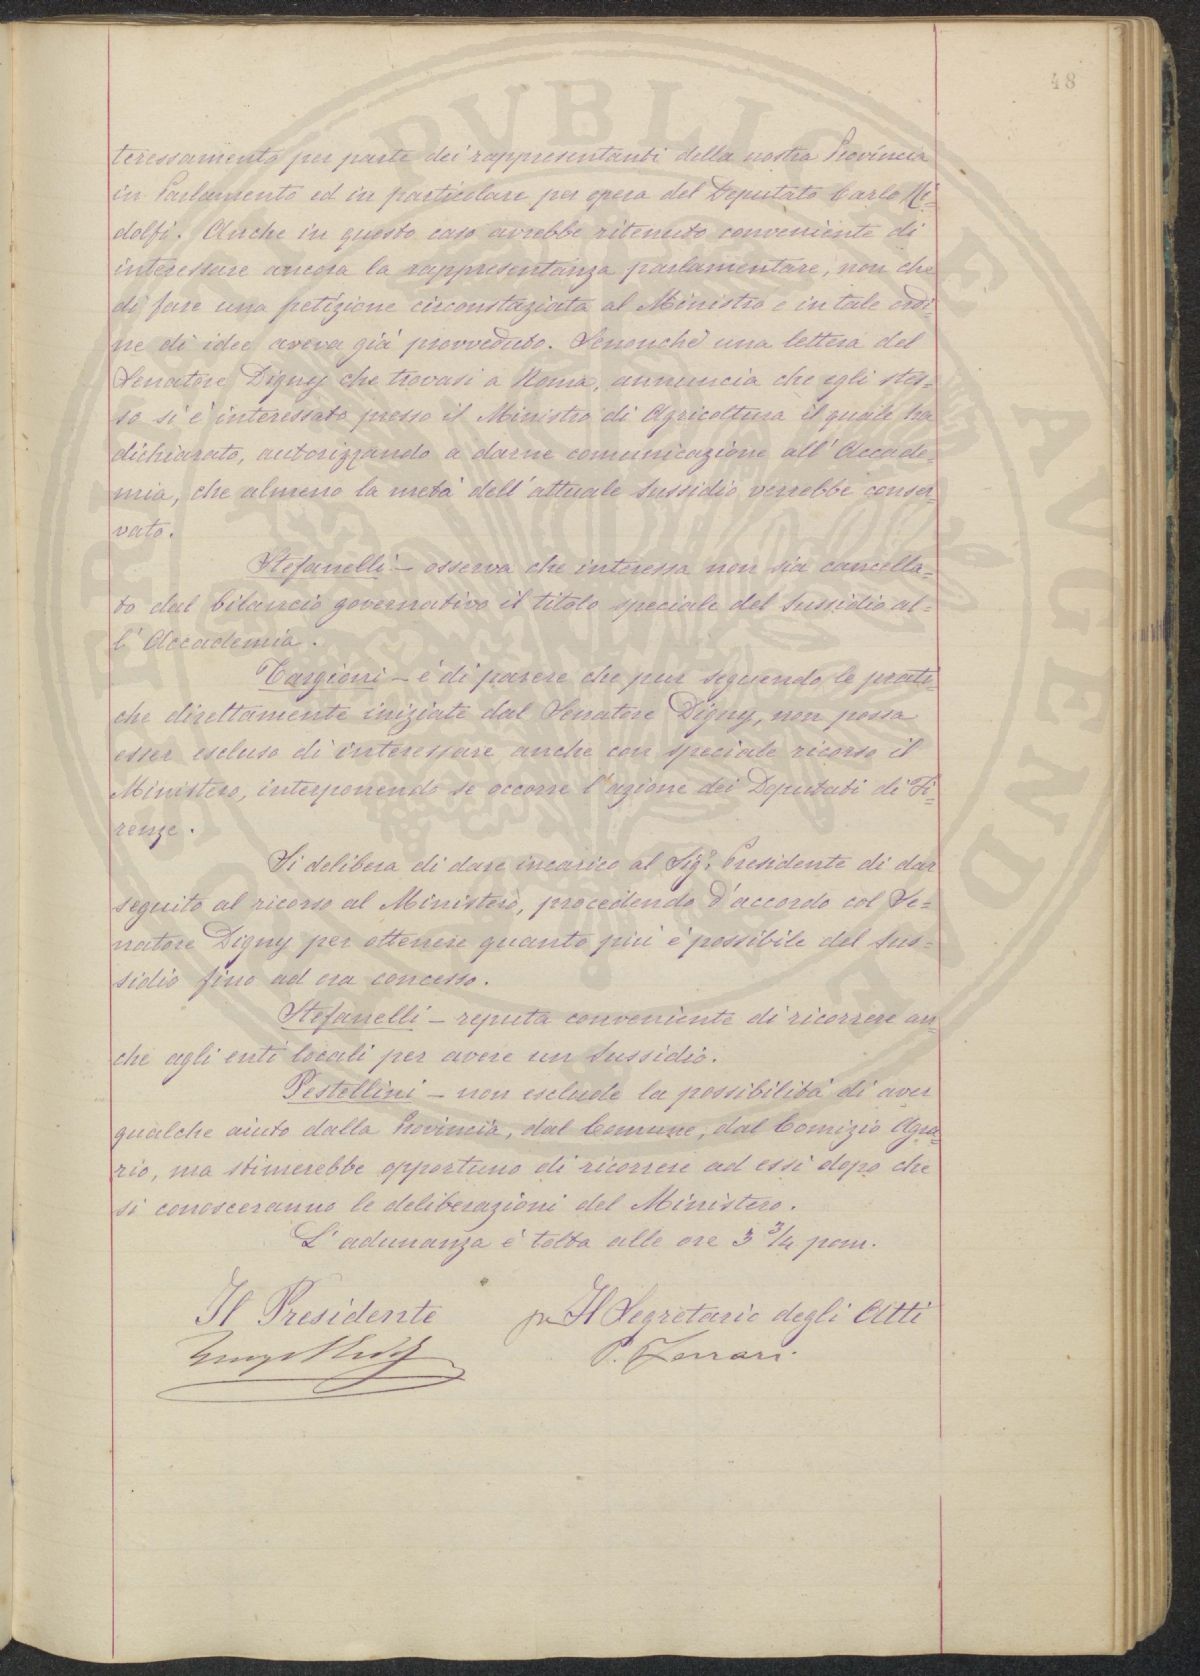 48
teressamento per parte dei rappresentanti della nostra Provincia
in Parlamento ed in particolare per opera del Deputato Carlo Ri-
dolfi. Anche in questo caso avrebbe ritenuto conveniente di
interessare ancora la rappresentanza parlamentare, non che
di fare una petizione circonstaziata al Ministro e in tale ordi-
ne di idee aveva già provveduto. Senonchè una lettera del
Senatore Digny che trovasi a Roma, annuncia che egli stes-
so si è interessato presso il Ministro di Agricoltura il quale ha
dichiarato, autorizzando a darne comunicazione all'Accade-
mia, che almeno la metà dell'attuale sussidio verrebbe conser-
vato.
Stefanelli - osserva che interessa non sia cancella-
to dal bilancio governativo il titolo speciale del sussidio al-
l'Accademia.
Targioni - è di parere che pur seguendo le prati-
che direttamente iniziate dal Senatore Digny, non possa
esser escluso di interessare anche con speciale ricorso il
Ministero, interponendo se occorre l'azione dei Deputati di Fi-
renze.
Si delibera di dare incarico al Sigr. Presidente di dar
seguito al ricorso al Ministero, procedendo d'accordo col Se-
natore Digny per ottenere quanto più è possibile del sus-
sidio fino ad ora concesso.
Stefanelli - reputa conveniente di ricorrere an-
che agli enti locali per avere un sussidio.
Pestellini - non esclude la possibilità di aver
qualche aiuto dalla Provincia, dal Comune, dal Comizio Agra-
rio, ma stimerebbe opportuno di ricorrere ad essi dopo che
si conosceranno le deliberazioni del Ministero.
L'adunanza è tolta alle ore 3 3/4 pom.
Il Presidente
pr Il Segretario degli Atti
P. Ferrari.